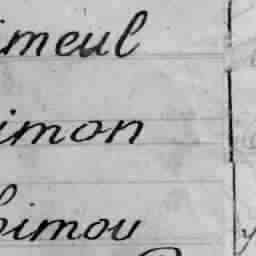 imeul
imon
imou